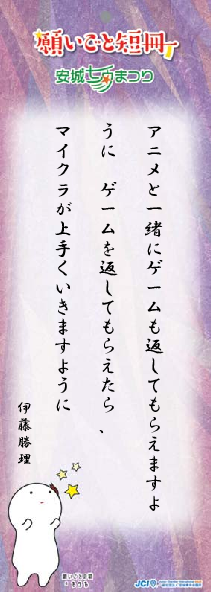 願いごと短冊
安城七夕まつり
アニメと一緒にゲームも返してもらえますよ
うに　ゲームを返してもらえたら、
マイクラが上手くいきますように
伊藤勝理
JCI